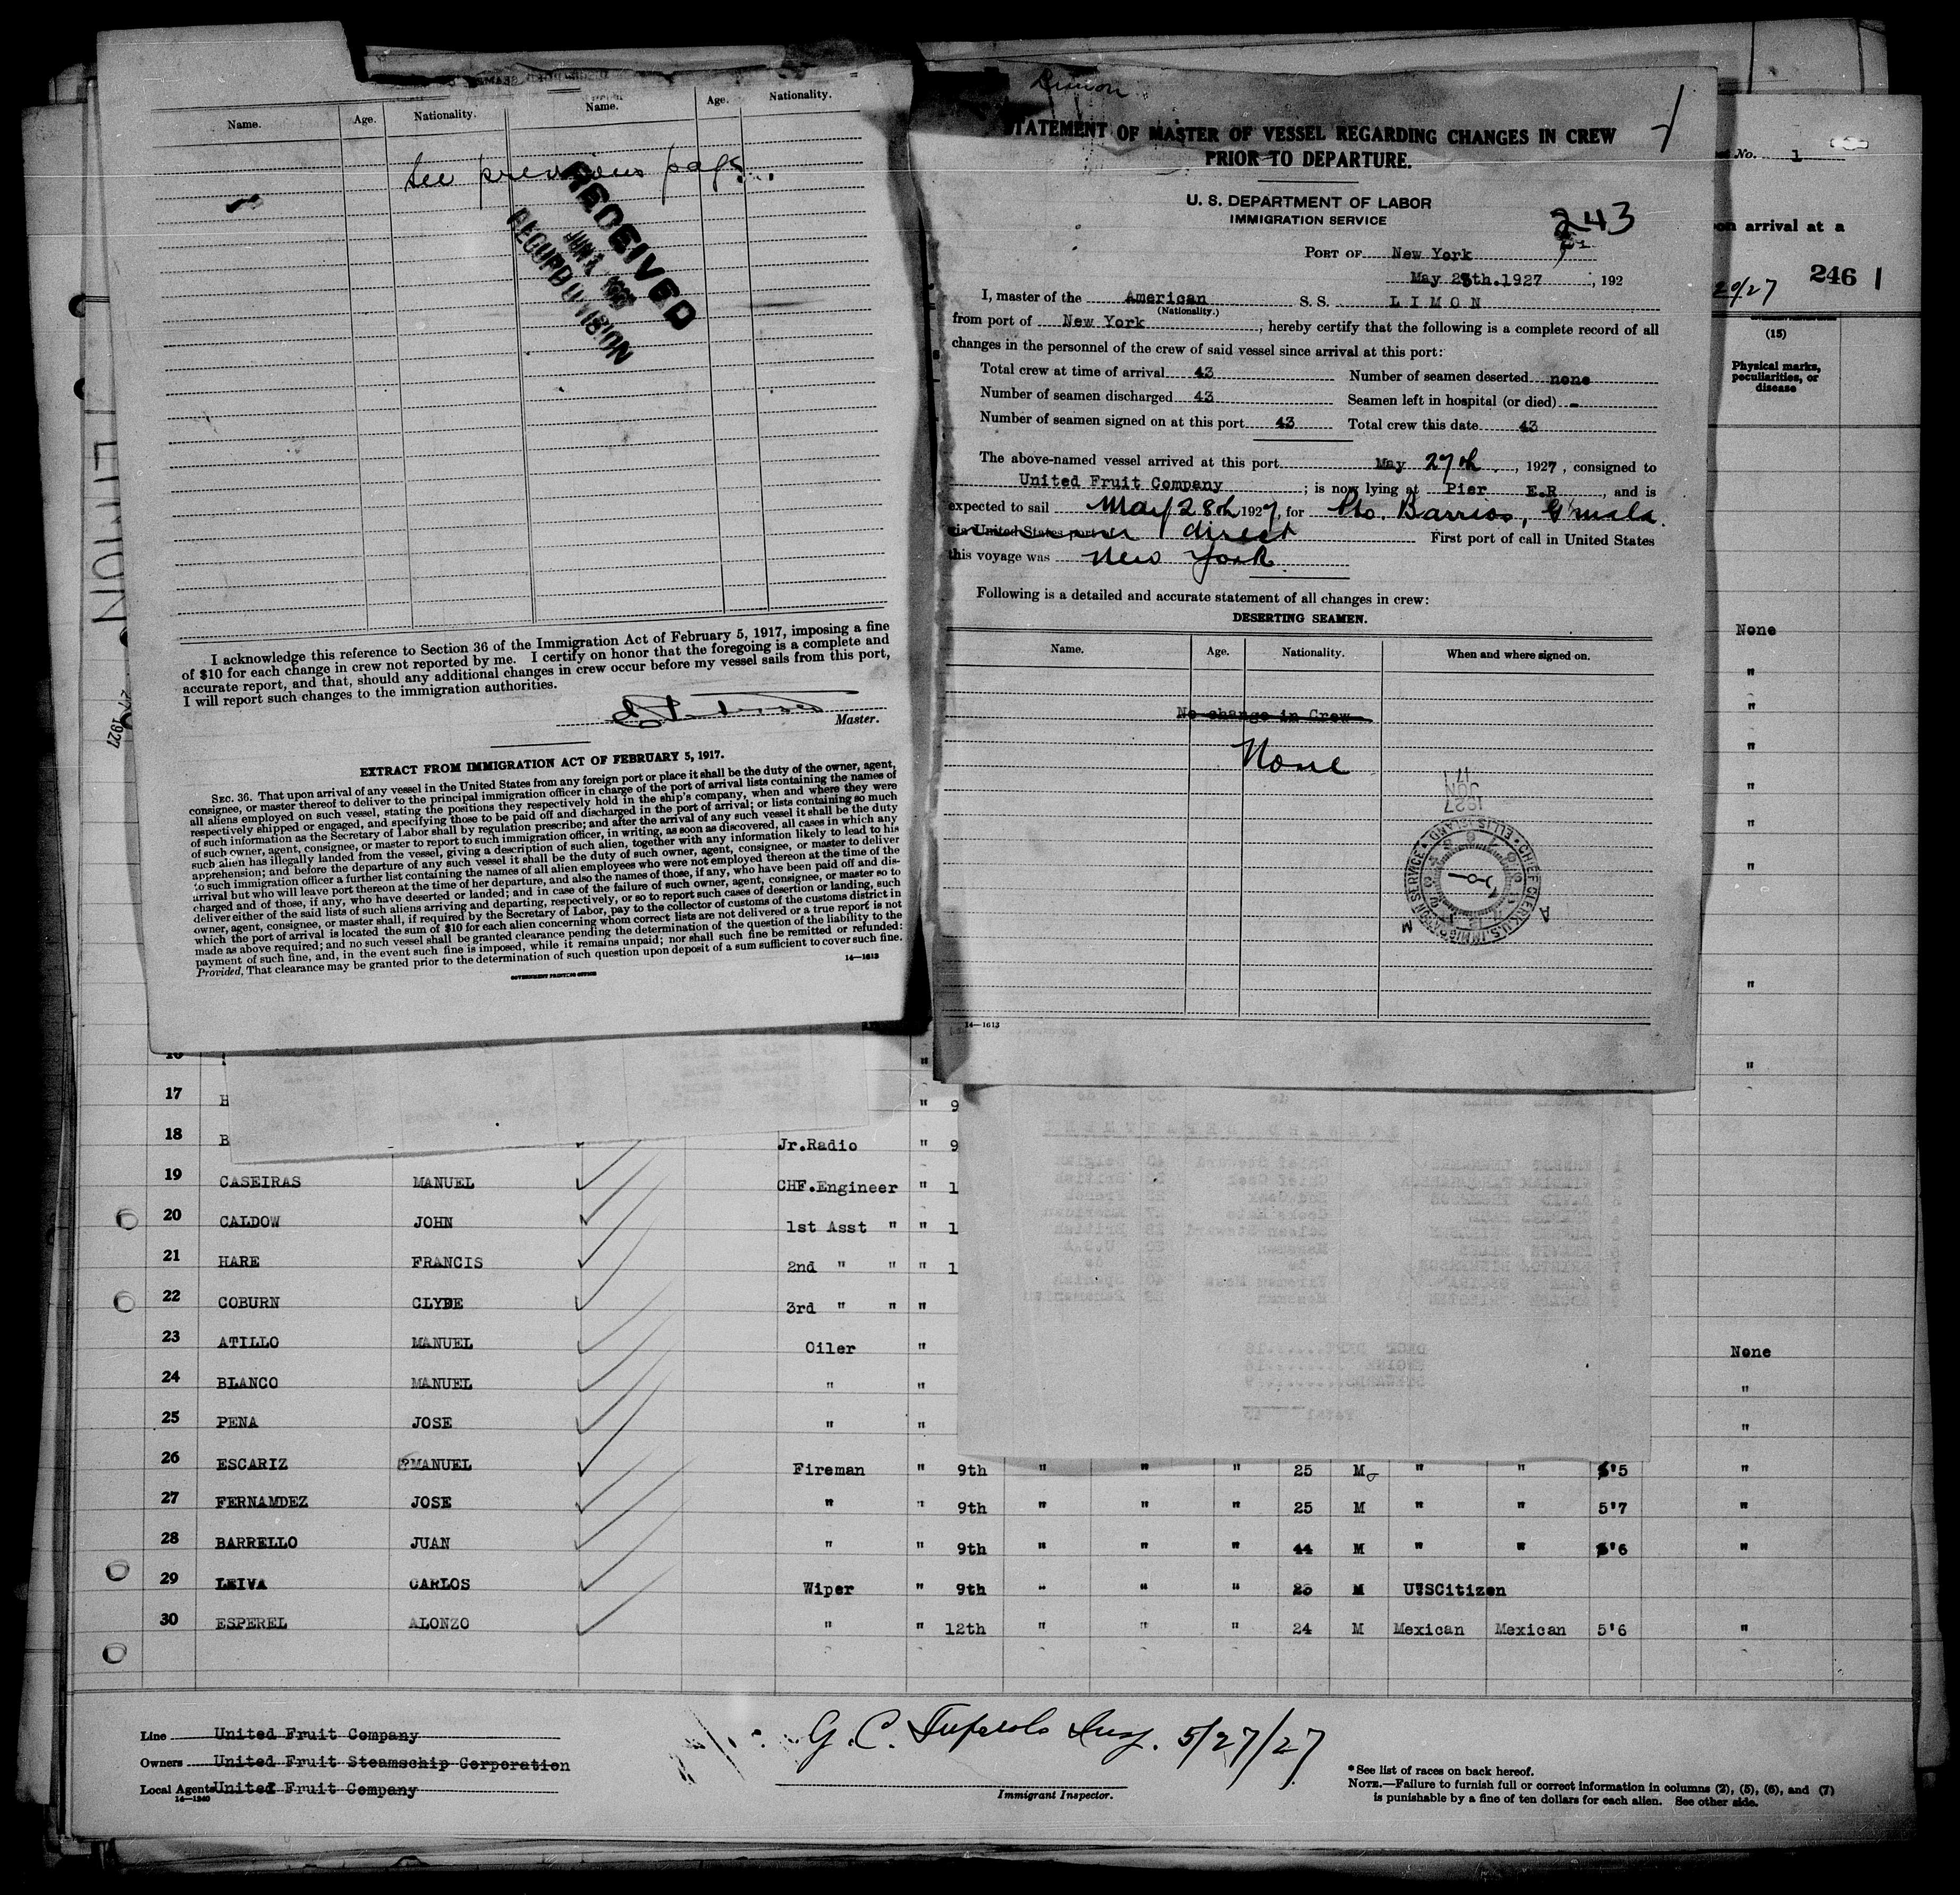 Name. Age. Nationality. Name. Age. Nationality.
See previous page
RECEIVED
RECORD DIVISION
I acknowledge this reference to Section 36 of the Immigration Act of February 5, 1917, imposing a fine
of $10 for each change in crew not reported by me. I certify on honor that the foregoing is a complete and
accurate report, and that, should any additional changes in crew occur before my vessel sails from this port,
I will report such changes to the immigration authorities.
Master.
EXTRACT FROM IMMIGRATION ACT OF FEBRUARY 5, 1917.
SEC. 36. That upon arrival of any vessel in the United States from any foreign port or place it shall be the duty of the owner, agent,
consignee, or master thereof to deliver to the principal immigration officer in charge of the port of arrival lists containing the names of
all aliens employed on such vessel, stating the positions they respectively hold in the ship's company, when and where they were
respectively shipped or engaged, and specifying those to be paid off and discharged in the port of arrival; or lists containing so much
of such information as the Secretary of Labor shall by regulation prescribe; and after the arrival of any such vessel it shall be the duty
of such owner, agent, consignee, or master to report to such immigration officer, in writing, as soon as discovered, all cases in which any
such alien has illegally landed from the vessel, giving a description of such alien, together with any information likely to lead to his
apprehension; and before the departure of any such vessel it shall be the duty of such owner, agent, consignee, or master to deliver
to such immigration officer a further list containing the names of all alien employees who were not employed thereon at the time of the
arrival but who will leave port thereon at the time of her departure, and also the names of those, if any, who have been paid off and dis-
charged and of those, if any, who have deserted or landed; and in case of the failure of such owner, agent, consignee, or master so to
deliver either of the said lists of such aliens arriving and departing, respectively, or so to report such cases of desertion or landing, such
owner, agent, consignee, or master shall, if required by the Secretary of Labor, pay to the collector of customs of the customs district in
which the port of arrival is located the sum of $10 for each alien concerning whom correct lists are not delivered or a true report is not
made as above required; and no such vessel shall be granted clearance pending the determination of the question of the liability to the
payment of such fine, and, in the event such fine is imposed, while it remains unpaid; nor shall such fine be remitted or refunded:
Provided, That clearance may be granted prior to the determination of such question upon deposit of a sum sufficient to cover such fine.
14—1613
GOVERNMENT PRINTING OFFICE
LIMON
1927
Limon
STATEMENT OF MASTER OF VESSEL REGARDING CHANGES IN CREW
PRIOR TO DEPARTURE.
U. S. DEPARTMENT OF LABOR
IMMIGRATION SERVICE
243
PORT OF New York
May 28th.1927, 192
I, master of the American S. S. LIMON
(Nationality.)
from port of New York, hereby certify that the following is a complete record of all
changes in the personnel of the crew of said vessel since arrival at this port:
Total crew at time of arrival 43 Number of seamen deserted none
Number of seamen discharged 43 Seamen left in hospital (or died) -
Number of seamen signed on at this port 43 Total crew this date 43
The above-named vessel arrived at this port May 27th, 1927, consigned to
United Fruit Company; is now lying at Pier E.R, and is
expected to sail May 28th 1927, for Pto. Barrios, G'mala.
via United States port direct First port of call in United States
this voyage was New York
Following is a detailed and accurate statement of all changes in crew:
DESERTING SEAMEN.
Name. Age. Nationality. When and where signed on.
No change in Crew
None
JUN
1927
CHIEF CLERK, U.S. IMMIGRATION SERVICE ELLIS ISLAND
A M
14—1613
No. 1
on arrival at a
246 1
(15)
Physical marks, peculiarities, or disease
None
"
"
"
"
"
"
"
"
16 "
17 H " 9
18 B Jr.Radio " 9
19 CASEIRAS MANUEL CHF.Engineer " 1
20 CALDOW JOHN 1st Asst " " 1
21 HARE FRANCIS 2nd " " " 1
22 COBURN CLYDE 3rd " " "
23 ATILLO MANUEL Oiler " None
24 BLANCO MANUEL " " "
25 PENA JOSE " " "
26 ESCARIZ MANUEL Fireman " 9th " " " 25 M " " 5'5 "
27 FERNAMDEZ JOSE " " 9th " " " 25 M " " 5'7 "
28 BARRELLO JUAN " " 9th " " " 44 M " " 5'6 "
29 LEIVA CARLOS Wiper " 9th " " " 23 M U"SCitizen
30 ESPEREL ALONZO " " 12th " " " 24 M Mexican Mexican 5'6 "
Line United Fruit Company
Owners United Fruit Steamschip Corporation
Local Agents United Fruit Company
14—1240
G. C. 5/27/27
Immigrant Inspector.
*See list of races on back hereof.
NOTE.—Failure to furnish full or correct information in columns (2), (5), (6), and (7)
is punishable by a fine of ten dollars for each alien. See other side.